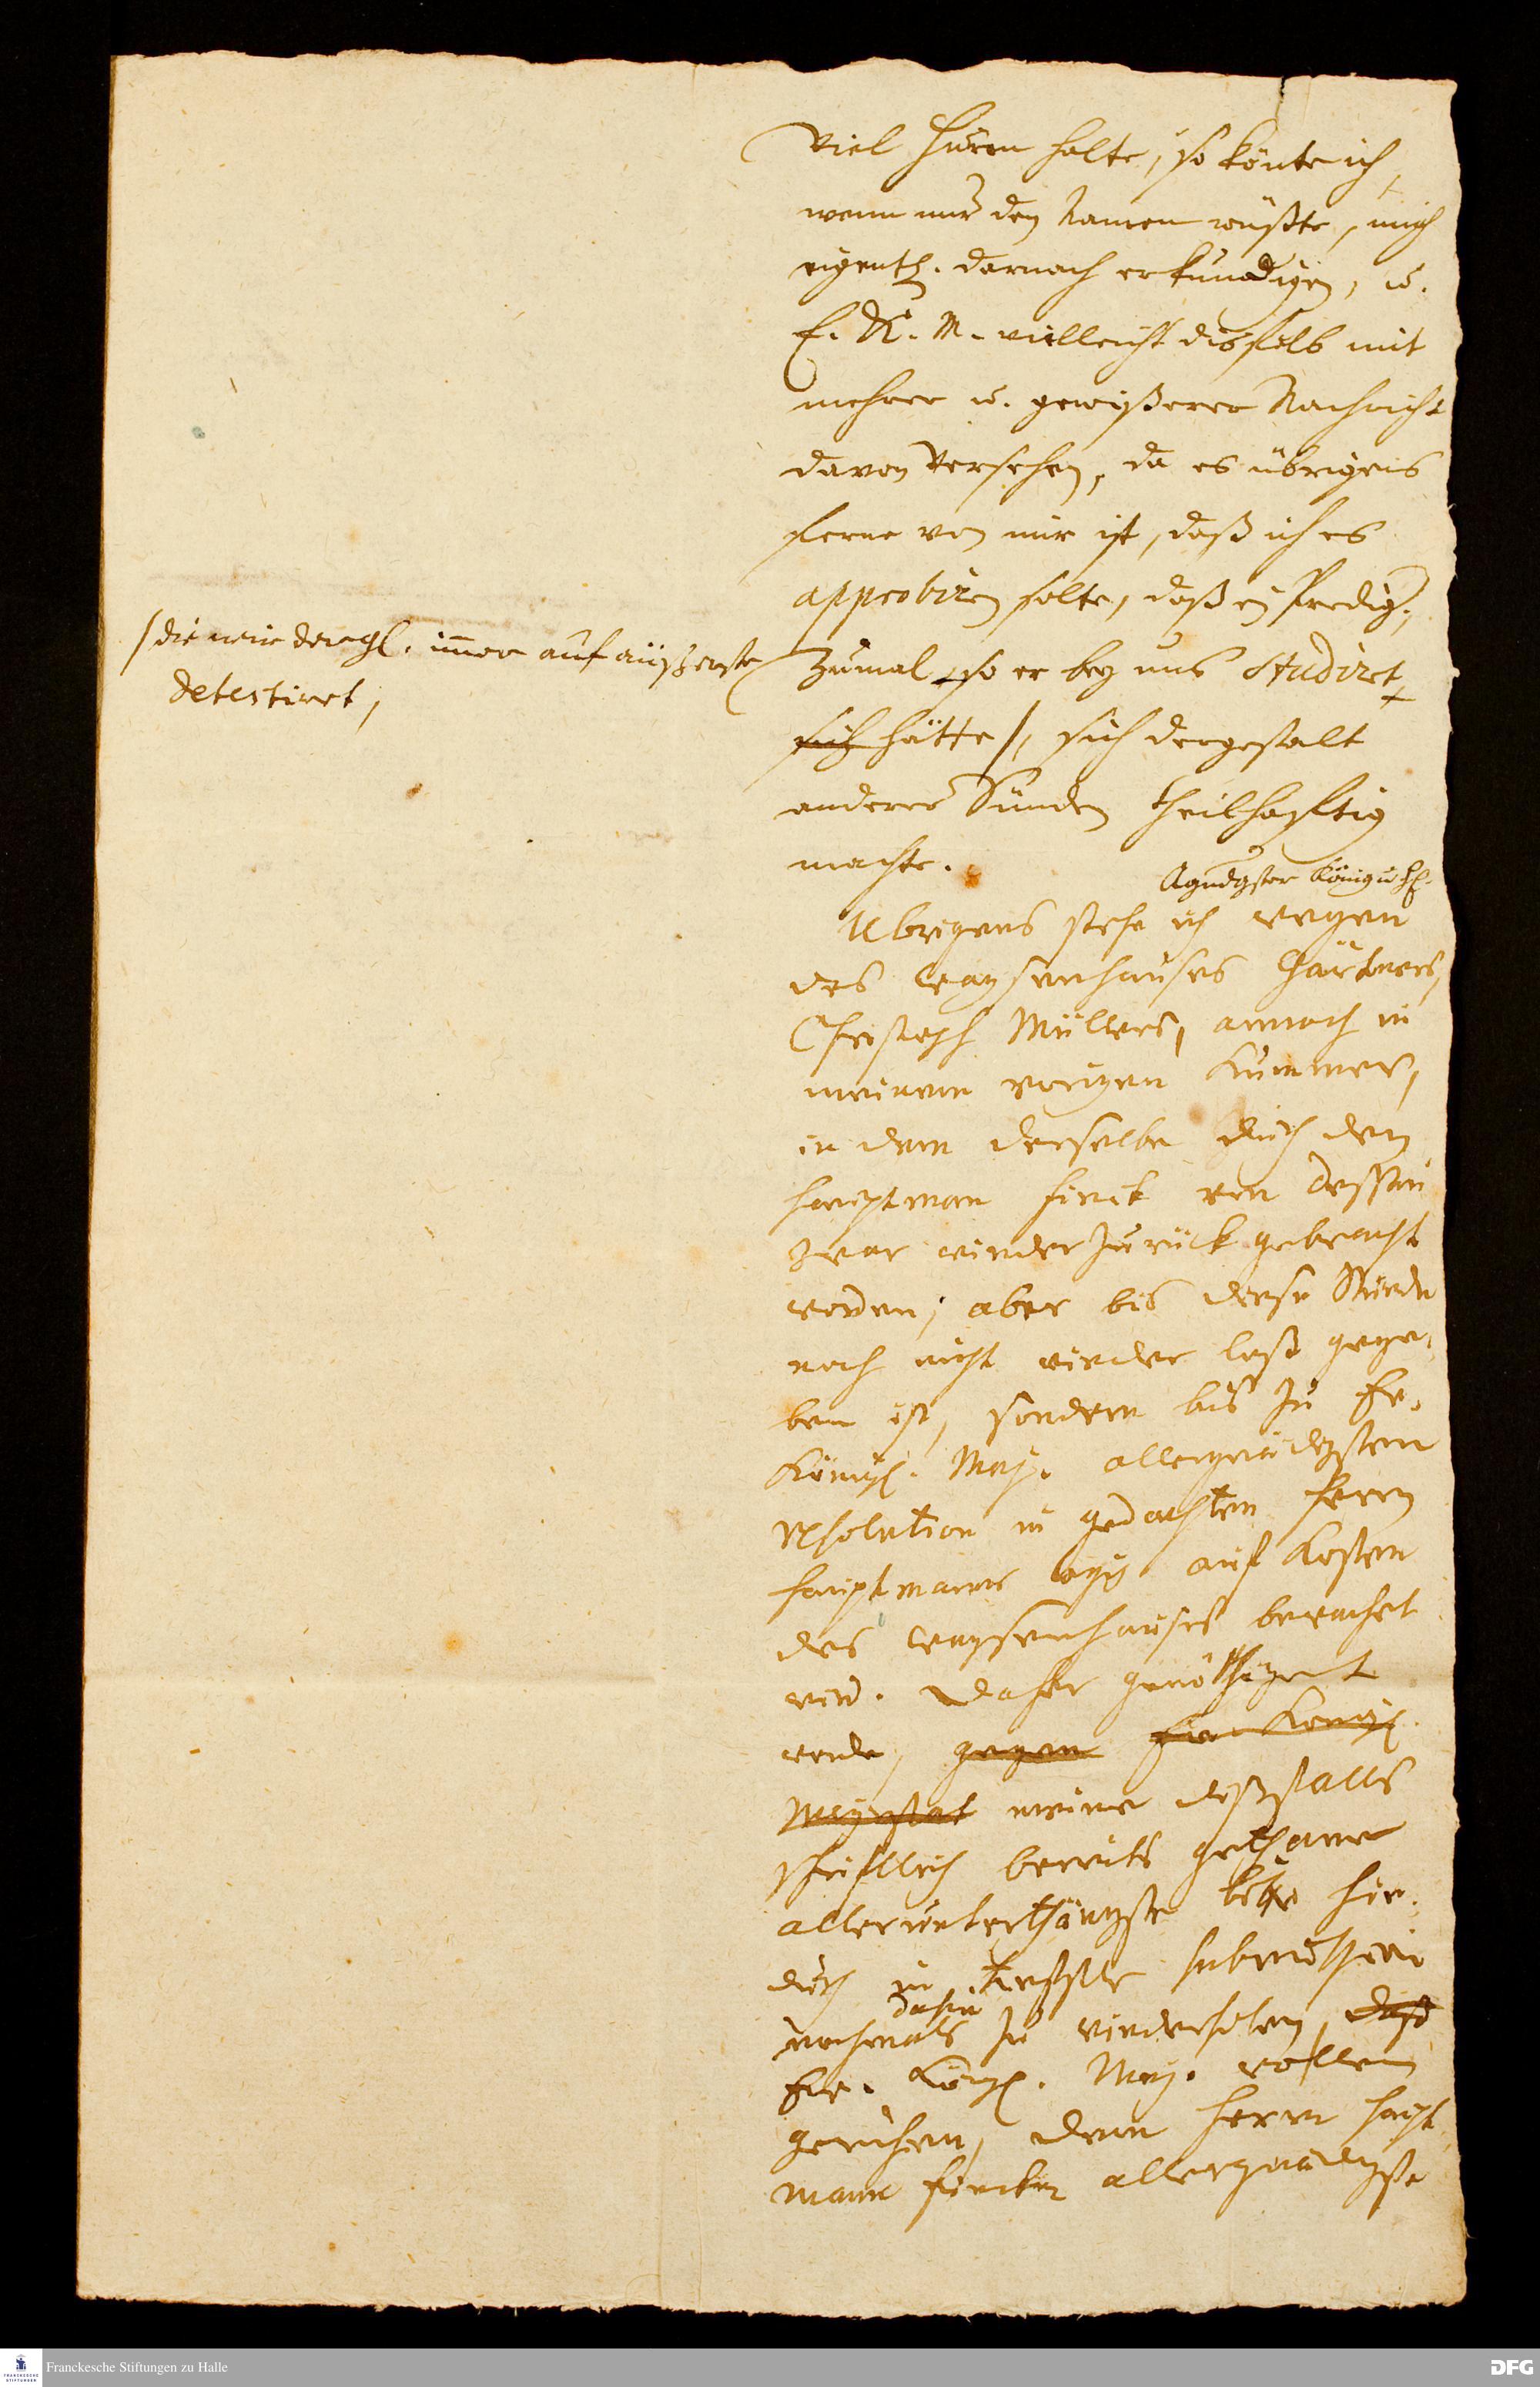 viel Huren halte, so könte ich,
wenn nur den Namen wüßte, mich
eigentl. darnach erkundigen, u.
E. K. M. vielleicht dißfalß mit
mehrer u. gewißerer Nachricht
davon versehen, da es übrigens
ferne von mir ist, daß ich es
approbiren solte, daß ein Predig.,
zumal, so er bey uns studiret,
sich hätte /, sich dergestalt
/ die wir dergl. immer auf äußerste
detestiret,
anderer Sünden theilhafftig
machte.
Agndgster König u. H.
Ubrigens stehe ich wegen
des Waysenhauses Gärtners,
Christoph Müllers, annoch in
meinem vorigen Kummer,
in dem derselbe durch den
Hauptman Finck von Dessau
zwar wieder zurück gebracht
worden, aber bis diese Stunde
noch nicht wieder loß gege-
ben ist, sondern bis zu Ew.
Königl. Maj. allergnädigsten
resolution in gedachten Herrn
Hauptmanns auf Kosten
des Waysenhauses bewachet
wird. Daher genöthiget
werde, gegen Ew. Königl.
Majestät meine deßfalls
schrifftlich bereits gethane
allerunterthänigste bitte hie-
durch in tiefster submission
dahin
nochmals zu wiederholen, daß
Ew. Königl. Maj. wollen
geruhen, dem Herrn Haupt-
mann Fincken allergnädigste
Franckesche Stiftungen zu Halle
DFG